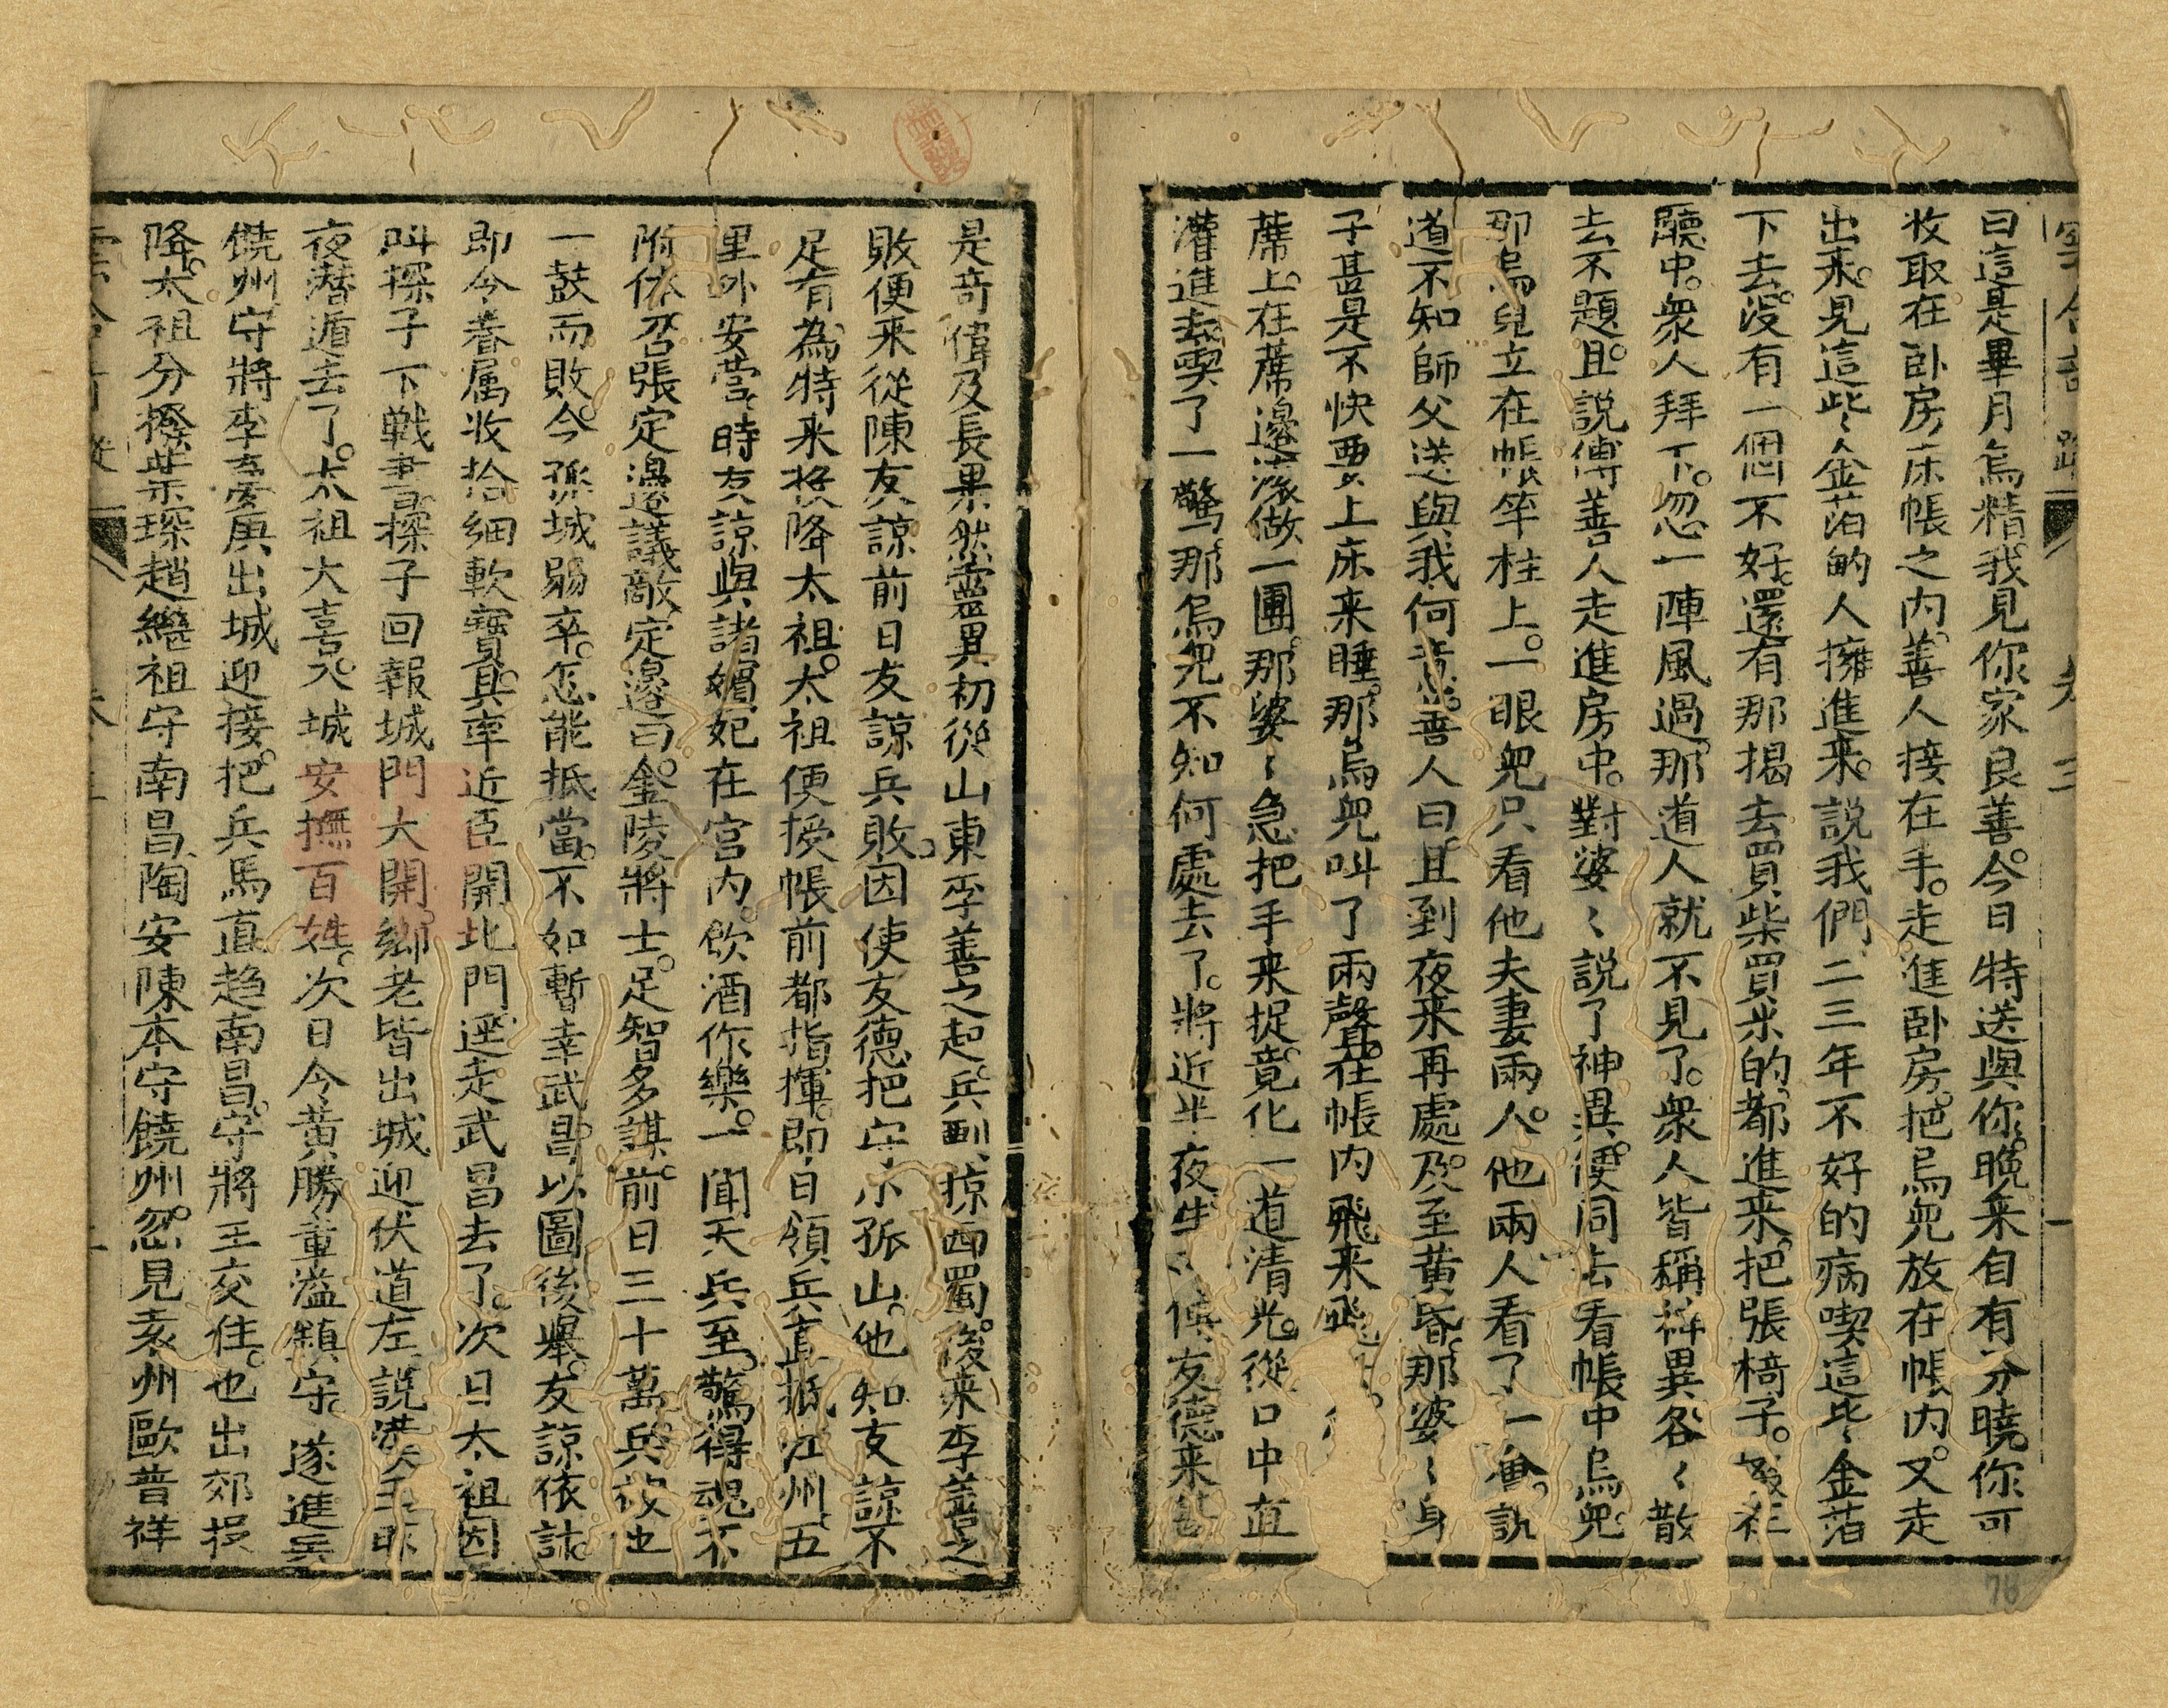 曰這是畢月烏精我見你家良善今日特送與你晚来自有分曉你可
收取在卧房床帳之内善人接在手走進卧房把烏児放在帳内又走
出来見這些金箔的人擁進来說我們二三年不好的病喫這些金箔
下去没有一個不好還有那揭去買柴買米的都進来把張椅子
廳中衆人拜下忽一陣風過那道人就不見了衆人皆稱神異各〻散
去不題且說傅善人走進房中對婆〻說了神異便同去看帳中烏児
那烏兒立在帳竿柱上一眼児只看他夫妻兩人他兩人看了一會說
道不知師父送與我何意善人曰且到夜来再處及至黄昏那婆〻身
子甚是不快要上床来睡那烏児叫了兩聲在帳内飛来飛
蓆上在蓆邊滚做一團那婆〻急把手来捉竟化一道清光從口中直
灌進去喫了一驚那烏児不知何處去了將近半夜生 候友德来甚
是竒偉及長果然靈異初從山東李善之起兵剽掠西蜀後来李善之
敗便来從陳友諒前日友諒兵敗因使友德把守小孤山他知友諒不
足有為特来投降太祖太祖便授帳前都指揮即日領兵直抵江州五
里外安營時友諒與諸嬪妃在宫内飲酒作樂一聞天兵至驚得魂不
附体召張定邊議敵定邊曰金陵將士足智多謀前日三十萬兵被他
一鼓而敗今孤城弱卒怎能抵當不如暫幸武昌以圖後舉友諒依計
即令眷属收拾細軟寶貝率近臣開北門逕走武昌去了次日太祖因
叫探子下戰書探子回報城門大開鄉老皆出城迎伏道左說漢王昨
夜潜遁去了太祖大喜入城安撫百姓次日令黄勝童溢鎮守遂進兵
饒州守將李夢庚出城迎接把兵馬直趋南昌守將王交住也出郊投
降太祖分撥葉琛趙繼祖守南昌陶安陳本守饒州忽見袁州歐普祥